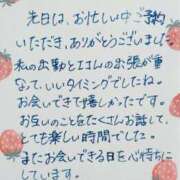 先日は、お忙しい中ご予約
いただき、ありがとうございました
私の出勤とエコムの出張が重
なって、いいタイミングでしたね。
お会いできて嬉しかったです。
お互いのことをたくさんお話して、
とても楽しい時間でした。
またお会いできる日を心待ちに
しています。